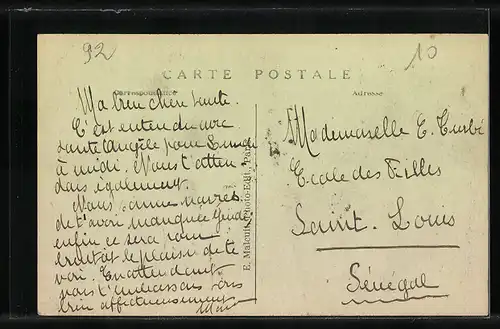 92
10
CARTE POSTALE
Correspondance
Adresse
Ma bien chère tante.
C'est entendu avec
tante Angèle pour
à midi. Nous t'atten-
dons également.
Nous sommes navrés
de t'avoir manquée
enfin ce sera pour
bientôt le plaisir de te
voir. En attendant
nous t'embrassons
bien affectueusement
E. Malcuit, Photo-Edit., Paris
Mademoiselle E.
Ecole des Filles
Saint. Louis
Sénégal